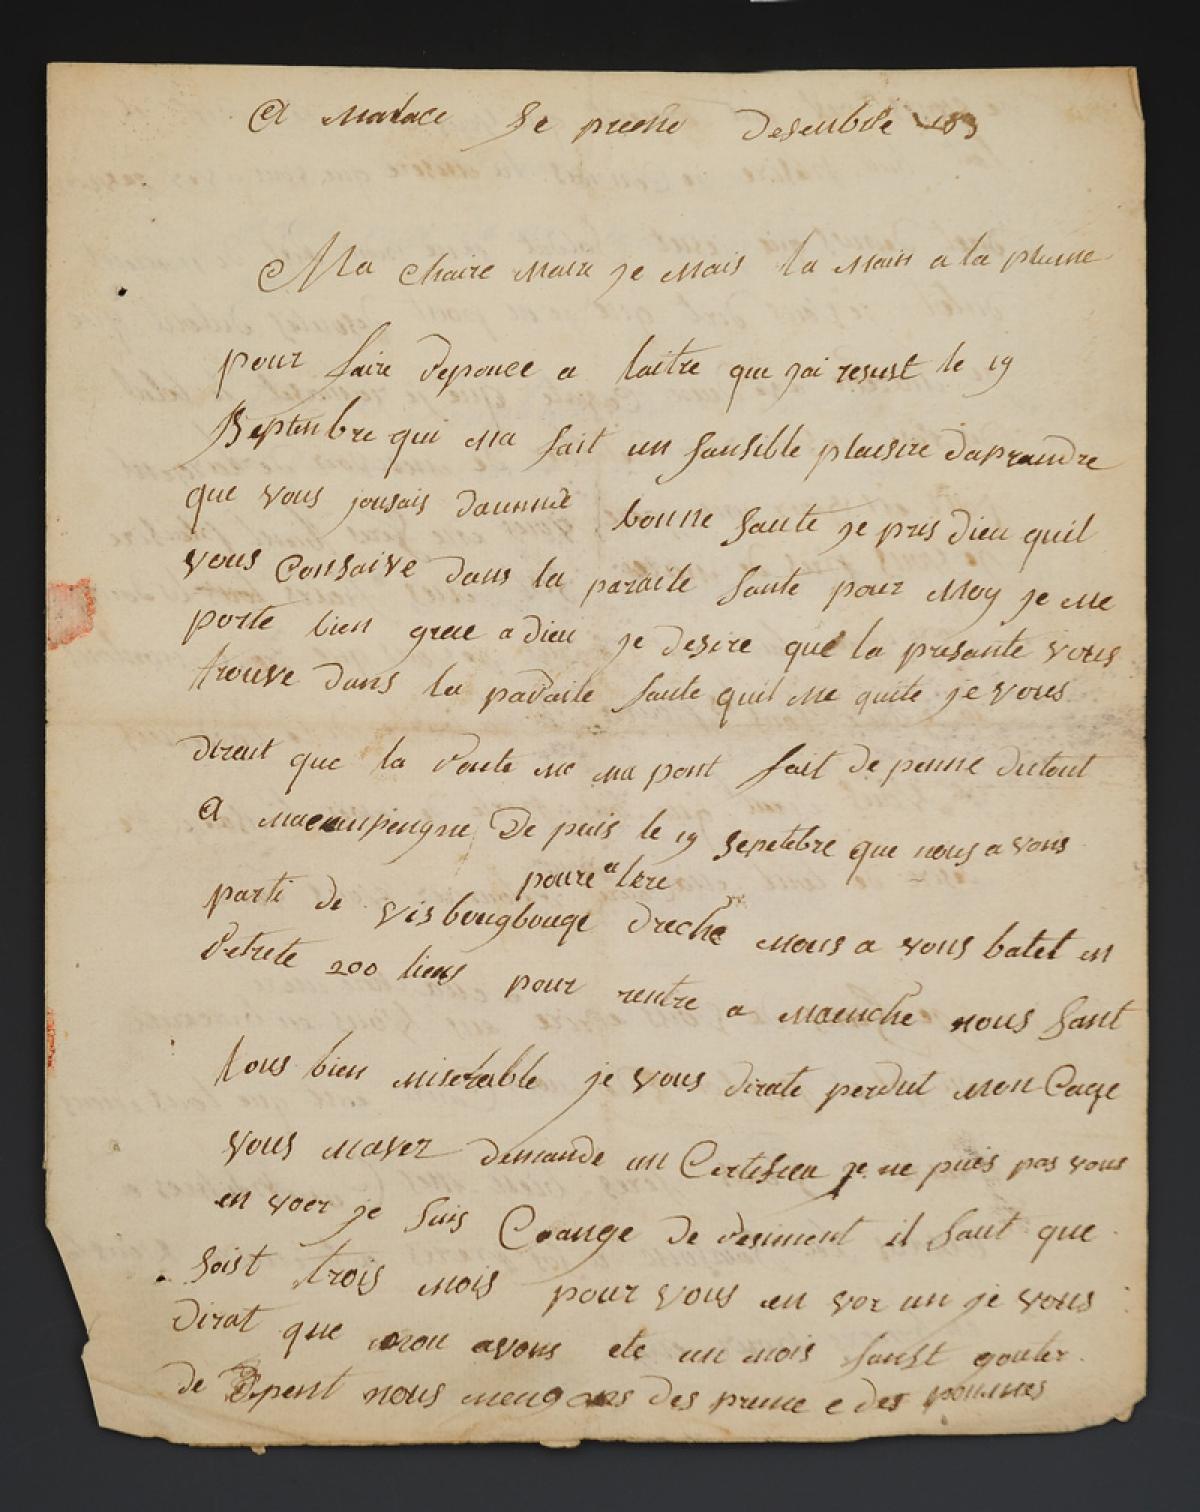 A Maiace Le preche Desenbre 183
Ma chaire Maire je Mais la Main a la plume
pour faire reponce a laitre que jai resust le 19
Septenbre qui Ma fait un sansible plaisire daprandre
que vous jousais daunne bonne sante je pris dieu quil
vous Consaive dans la paraite sante pour Moy je Me
porte bien grace a dieu je desire que la presante vous
trouve dans la paraite sante quil Me quite je vous
dirait que la route Me Ma pont fait de penne dutout
A Macanpengne De puis le 19 Sepetebre que nous a vons
poure a lere
parti de visbougbouge dreche Nous a vons batet en
retrete 200 lieus pour rentre a Maenche nous sant
tous bien Miserable je vous dirate perdut Mon Cage
vous Mavez demande un Certifica je ne puis pas vous
en voer je suis Change de resiment il faut que
soist trois Mois pour vous en voer un je vous
dirat que nou avons ete un Mois sanst gouter
de pent nous Mengons des prune e des pommes